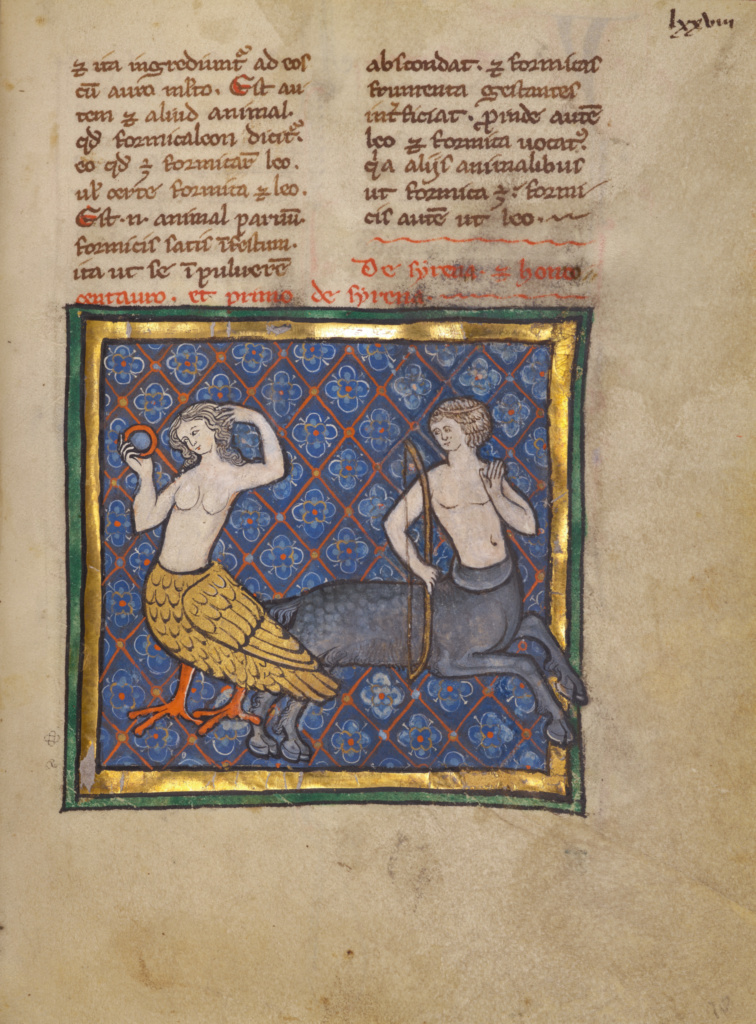 lxxviii
⁊ ita ingrediunt᷑ ad eos
cū auro misto. Est au
tem ⁊ aliud animal.
qd̄ formicaleon dicit᷑.
eo qd̄ ⁊ formicaꝝ leo.
ul̓ certe formica ⁊ leo.
Est .n. animal paruū.
formicis satis īfestum.
ita ut se ī puluerē
abscondat. ⁊ formicas
frumenta gestantes
int̓ficiat. ꝓinde autē
leo ⁊ formica uocat᷑.
q̓a alijs animalibus
ut formica ÷. formi
cis autē ut leo.
De syrena ⁊ homo
centauro. et primo de syrena.